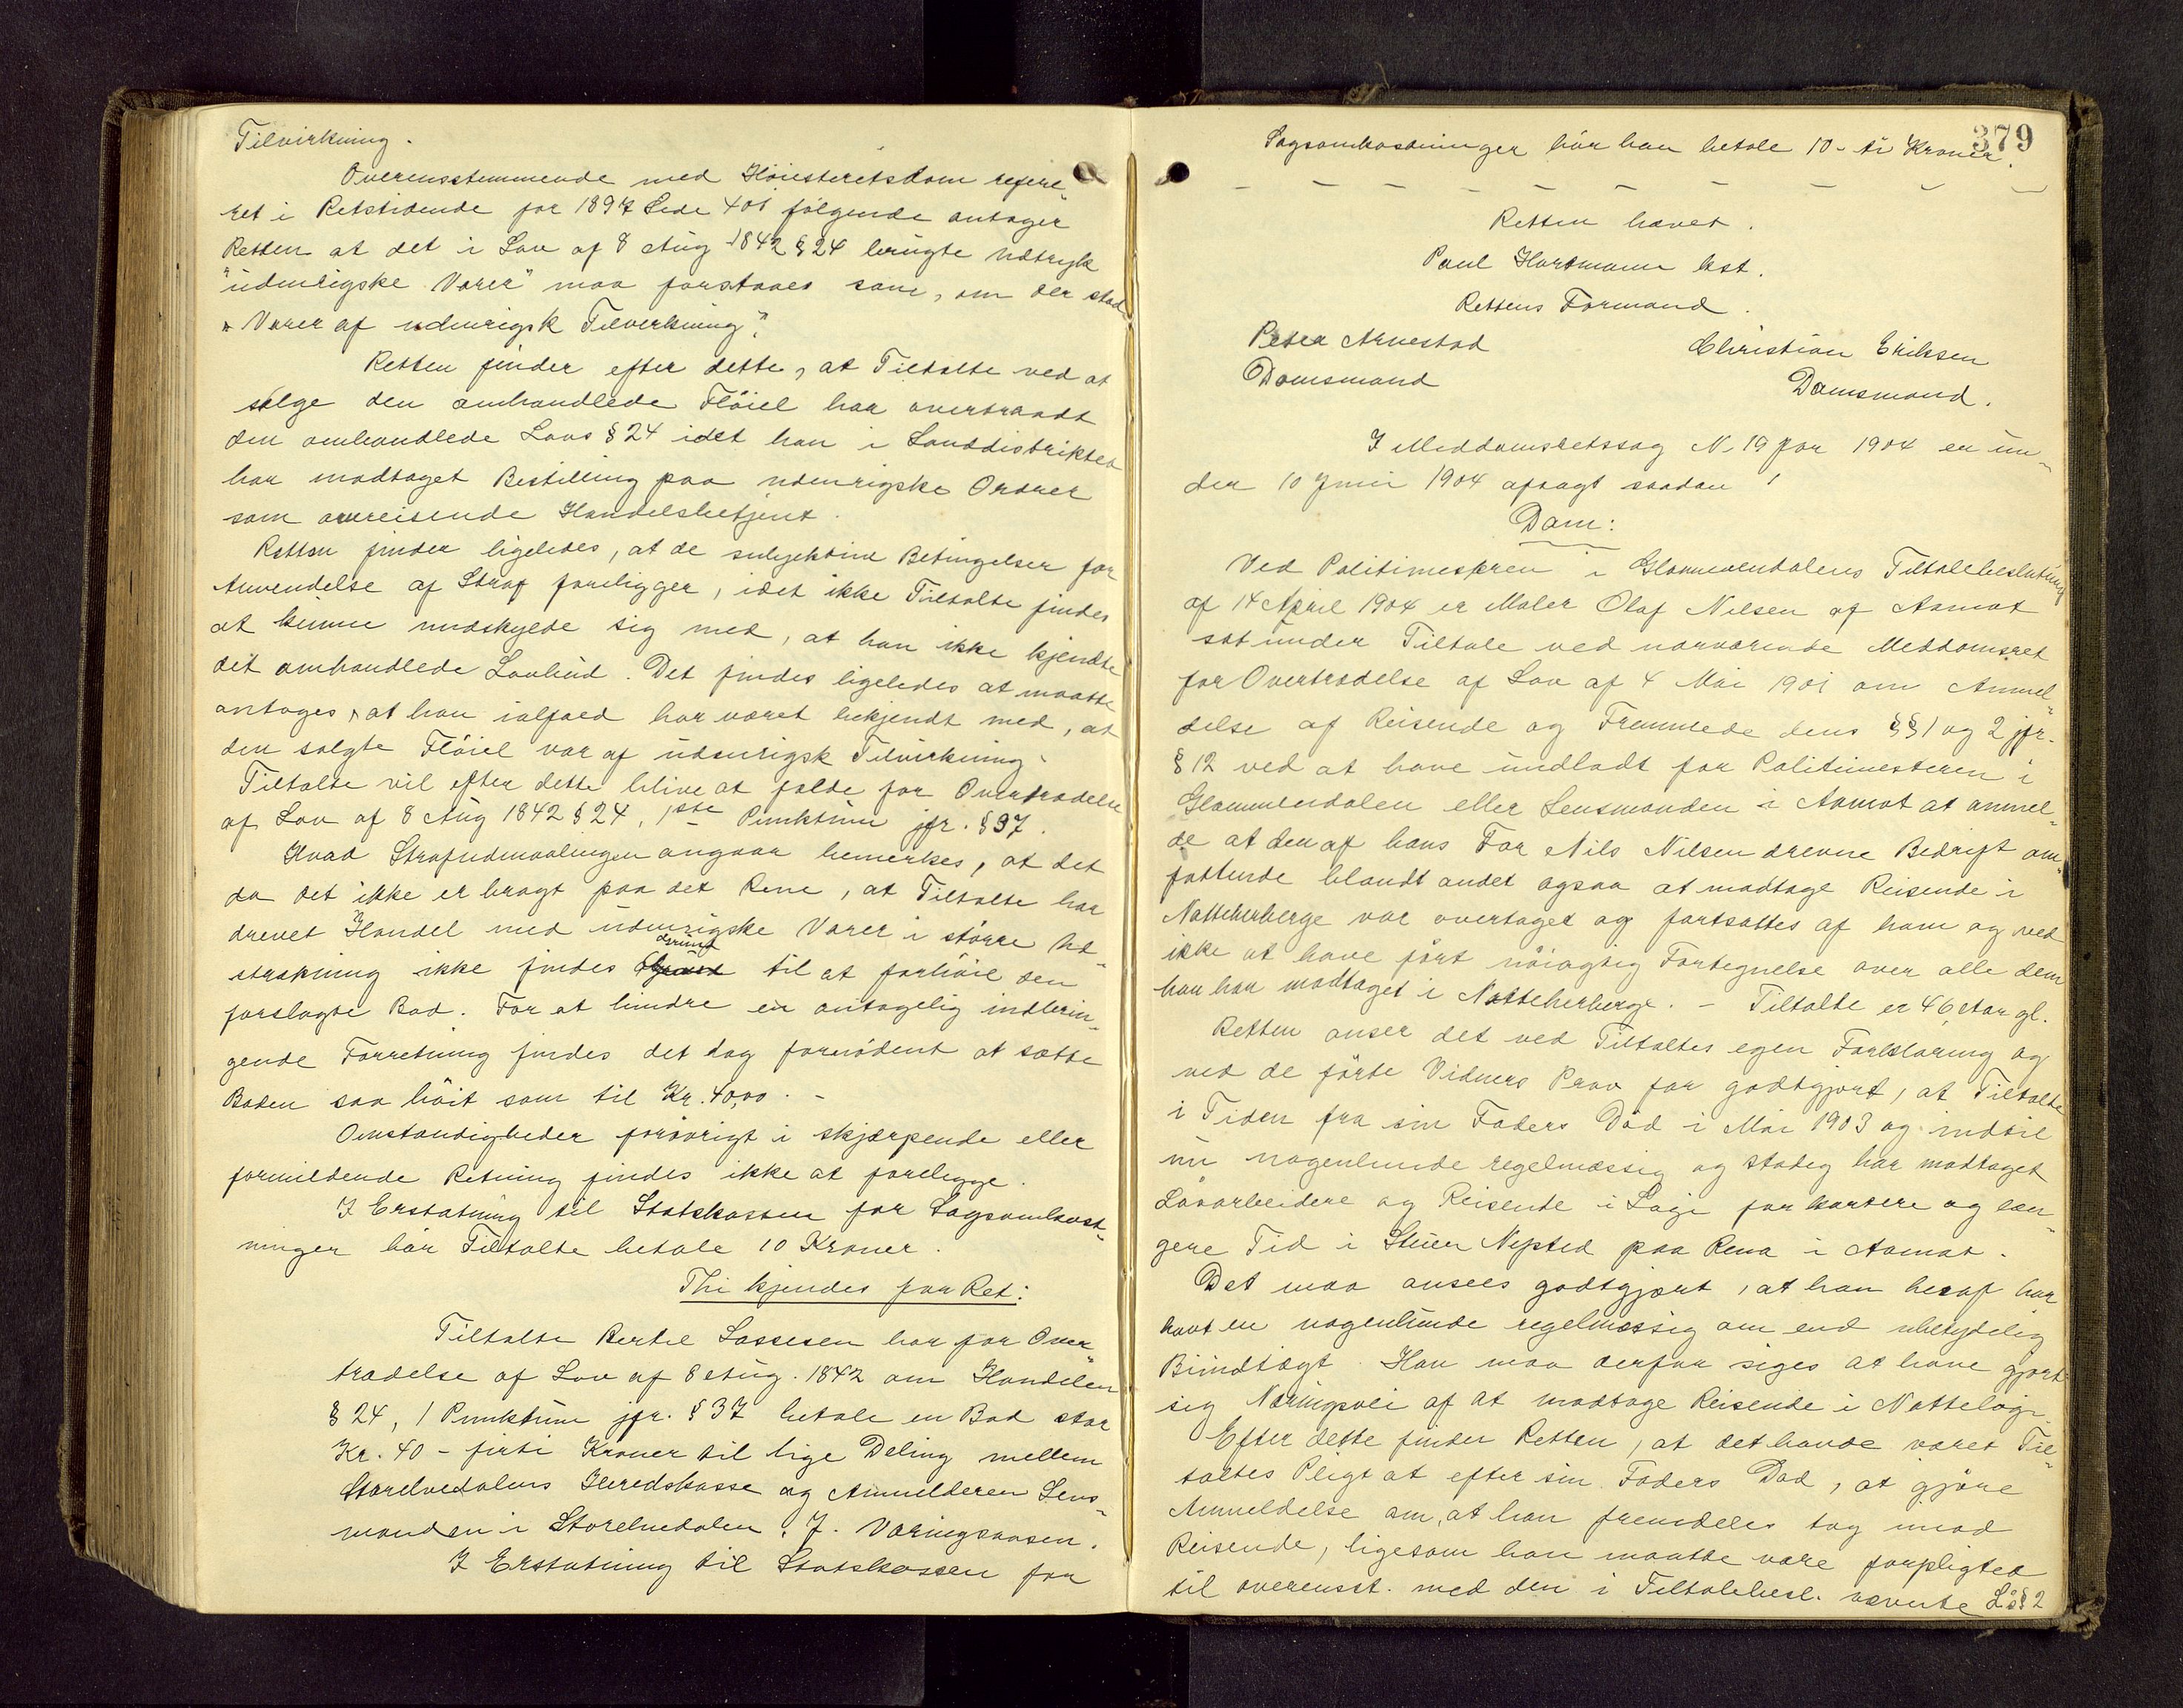 Tilvirkning.
Overensstemmende med Höiesteretsdom refere„
ret i Retstidende for 1897 Side 401 fölgende antager
Retten at det i Lov af 8 Aug 1842 § 24 brugte Udtryk
"udenrigske Varer" maa forstaaes som, om der stod
"Varer af udenrigsk Tilverkning".
Retten finder efter dette, at Tiltalte ved at
sælge den omhandlede Flöiel har overtraadt
den omhandlede Lovs § 24 idet han i Landdistriktet
har modtaget Bestilling paa udenrigske Ordrer
som omreisende Handelsbetjent.
Retten finder ligeledes, at de subjektive Betingelser for
Anvendelse af Straf foreligger, idet ikke Tiltalte findes
at kunne undskylde sig med, at han ikke kjendte
det omhandlede Lovbud. Det findes ligeledes at maatte
antages, at han ialfald har været bekjendt med, at
den solgte Flöiel var af udenrigsk Tilvirkning.
Tiltalte vil efter dette blive at fælde for Overtrædelse
af Lov af 8 Aug 1842 § 24, 1ste Punktum jfr. § 37.
Hvad Strafudmaalingen angaar bemerkes, at det
da det ikke er bragt paa det Rene, at Tiltalte har
drevet Handel med udenrigske Varer i större Ud„
strækning ikke findes Grund til at forhöie den
forslagte Bod. For at hindre en antagelig indbrin„
gende Forretning findes det dog fornödent at sætte
Boden saa höit som til Kr. 40,00. -
Omstændigheder forövrigt i skjærpende eller
formildende Retning findes ikke at foreligge.
I Erstatning til Statskassen for Sagsomkost„
ninger bör Tiltalte betale 10 Kroner.
Thi kjendes for Ret:
Tiltalte Bertil Lassesen bör for Over„
trædelse af Lov af 8 Aug. 1842 om Handelen
§ 24, 1 Punktum jfr. § 37 betale en Bod stor
Kr. 40 - firti Kroner til lige Deling mellem
Storelvedalens Herredskasse og Anmelderen Lens„
manden i Storelvedalen, J. Væringsaasen.
I Erstatning til Statskassen for
379
Sagsomkostninger bör han betale 10 - ti Kroner.
Retten hævet.
Paul Hartmann kst.
Rettens Formand.
Peter Arnestad Christian Eriksen
Domsmand Domsmand.
I Meddomsretssag N. 19 for 1904 er un„
der 10 Juni 1904 afsagt saadan
Dom:
Ved Politimesteren i Glommendalens Tiltalebeslutning
af 14 April 1904 er Maler Olaf Nilsen af Aamot
sat under Tiltale ved nærværende Meddomsret
for Overtrædelse af Lov af 4 Mai 1901 om Anmel„
delse af Reisende og Fremmede dens §§ 1 og 2 jfr.
§ 12 ved at have undladt for Politimesteren i
Glommendalen eller Lensmanden i Aamot at anmel„
de at den af hans Far Nils Nilsen drevne Bedrift om„
fattende blandt andet ogsaa at modtage Reisende i
Natteherberge var overtaget og fortsattes af ham og ved
ikke at have fört nöiagtig Fortegnelse over alle dem
han har modtaget i Natteherberge. - Tiltalte er 46 Aar gl.
Retten anser det ved Tiltaltes egen Forklaring og
ved de förte Vidners Prov for godtgjort, at Tiltalte
i Tiden fra sin Faders Död i Mai 1903 og indtil
nu nogenlunde regelmæssig og stadig har modtaget
Lösarbeidere og Reisende i Logi for kortere og læn„
gere Tid i Stuen Nysted paa Rena i Aamot.
Det maa ansees godtgjort, at han heraf har
havt en nogenlunde regelmæssig om end ubetydelig
Biindtægt. Han maa derfor siges at have gjort
sig Næringsvei af at modtage Reisende i Nattelogi.
Efter dette finder Retten, at det havde været Til„
taltes Pligt at efter sin Faders Död, at gjöre
Anmeldelse om, at han fremdeles tog imod
Reisende, ligesom han maatte være forpligted
til overensst. med den i Tiltalebesl. nævnte L's § 2